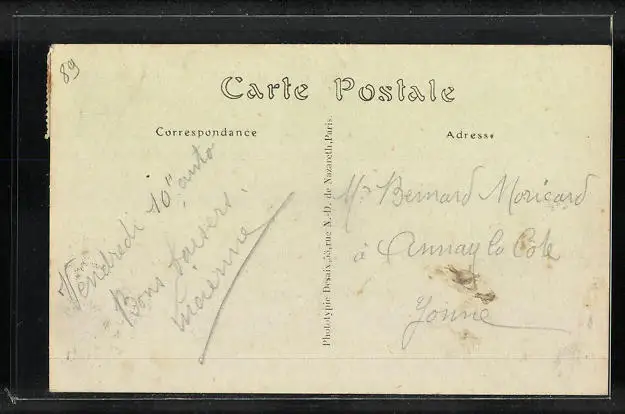 89
Carte Postale
Correspondance
Adresse
Vendredi 10 auto
Bons baisers.
Lucienne
Phototypie Desaix, 38, rue N.-D. de Nazareth, Paris.
Mr Bernard Moricard
à Annay la Côte
Yonne